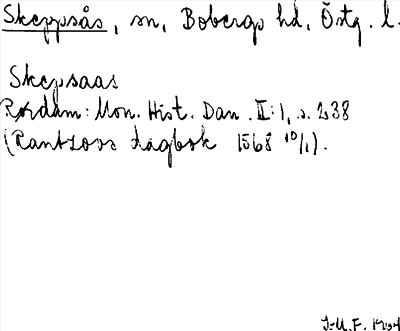 Skeppsås, sn, Bobergs hd, Östg. l.
Skepsaas
Rørdam: Mon. Hist. Dan. II:1, s. 238
(Rantzovs dagbok 1568 10/1).
J-U.F.